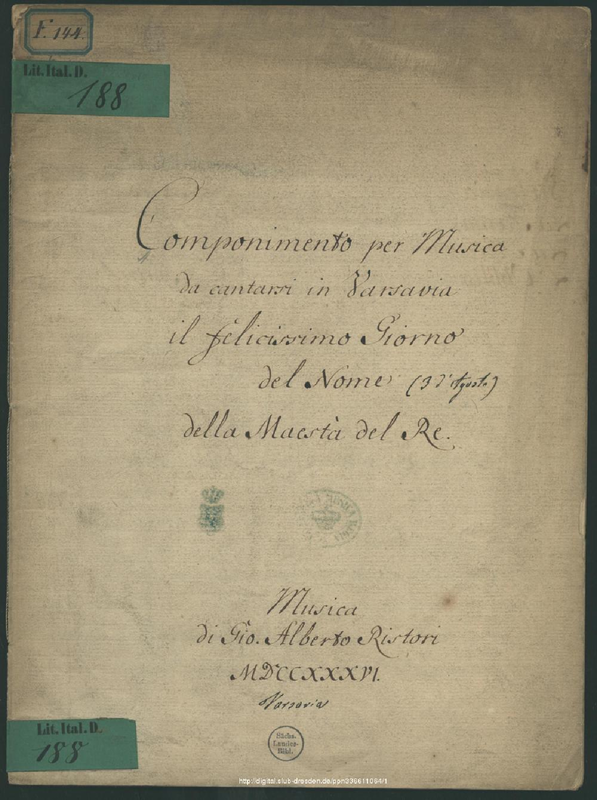 F. 144.
Lit. Ital. D.
188
Componimento per Musica
da cantarsi in Varsavia
il felicissimo Giorno
del Nome (3 d'Agosto)
della Maestà del Re.
Musica
di Gio. Alberto Ristori
MDCCXXXVI.
Varsavia
Lit. Ital. D.
188
Sächs.
Landes-
Bibl.
http://digital.slub-dresden.de/ppn336611064/1